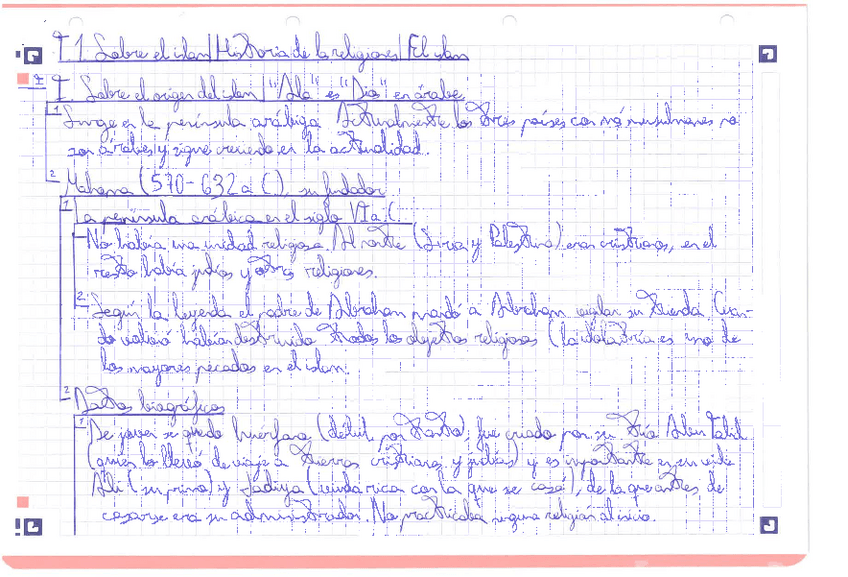 T.1. Sobre el islam/Historia de la religiones/El islam
I. Sobre el origen del islam/"Alá" es "Dios" en árabe
1 Surge en la península arábiga. Actualmente los tres países con más musulmanes no
son árabes y sigue creciendo en la actualidad.
2 Mahoma (570-632 a C), su fundador
1 La península arábica en el siglo VI a.C.
1 No había una unidad religiosa. Al norte (Siria y Palestina) eran cristianos, en el
resto había judíos y otras religiones.
2. Según la leyenda el padre de Abraham mandó a Abraham vigilar su tienda. Cuan-
do volvió habían destruido todos los objetos religiosos (la idolatría es uno de
los mayores pecados en el islam.
2 Datos biográficos
1 De joven se quedo huérfano (débil, por tanto), fue criado por su tío Abu Tablil
(quien lo llevó de viaje a tierras cristianas y judías) y es importante en su vida
Alí (su primo) y Jadiya (viuda rica con la que se casó), de la que antes de
casarse era su administrador. No practicaba ninguna religión al inicio.